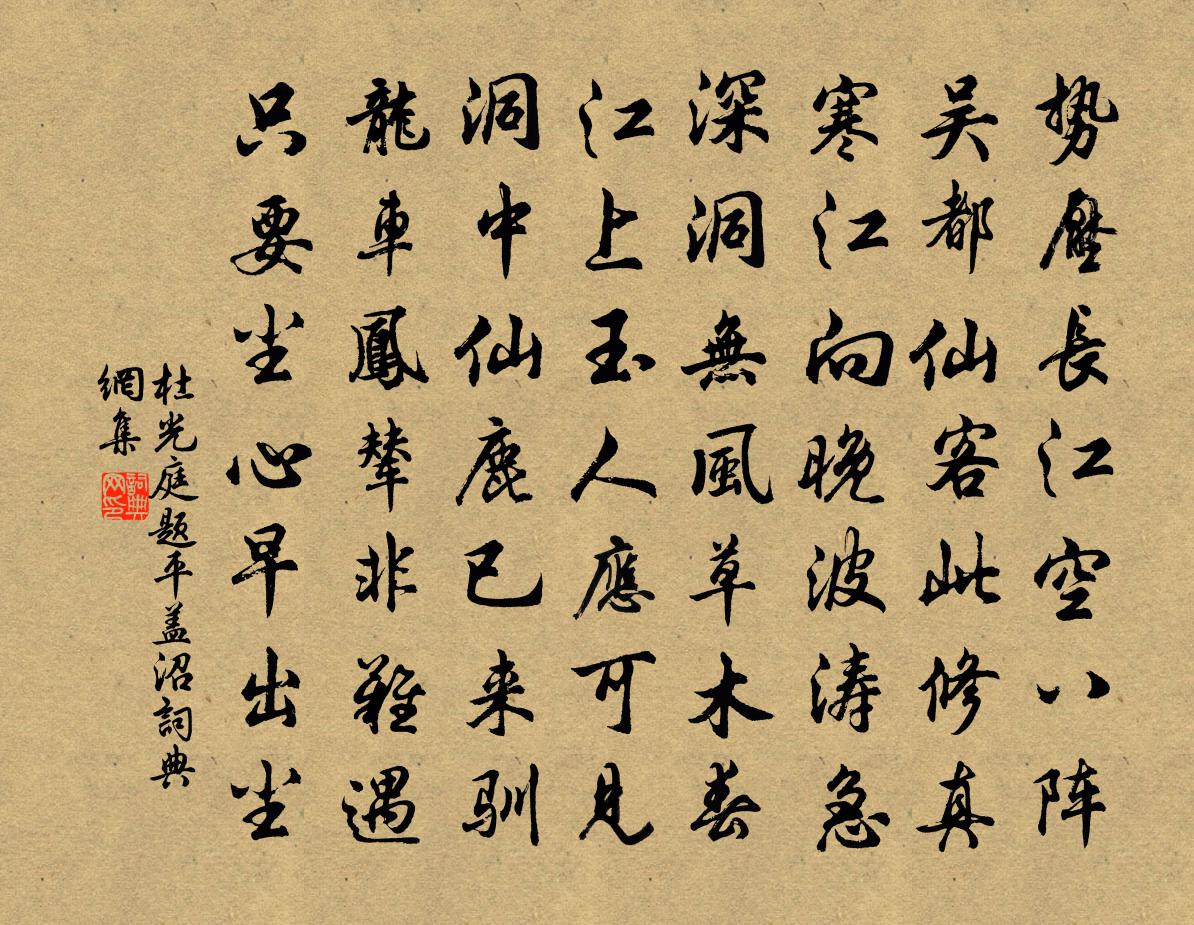 势壓長江空八阵
吴都仙客此修真
寒江向晚波涛急
深洞無風草木春
江上玉人應可見
洞中仙鹿已来馴
龍車鳳輦非難遇
只要尘心早出尘
杜光庭题平盖沼詞典
網集
詞典
网印